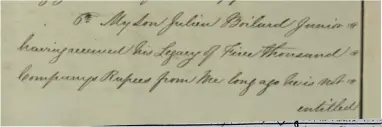 6th My Son Julien Boilard Junior
having received his Legacy of Five thousand
Companys Rupees from Me long ago he is not
entitled